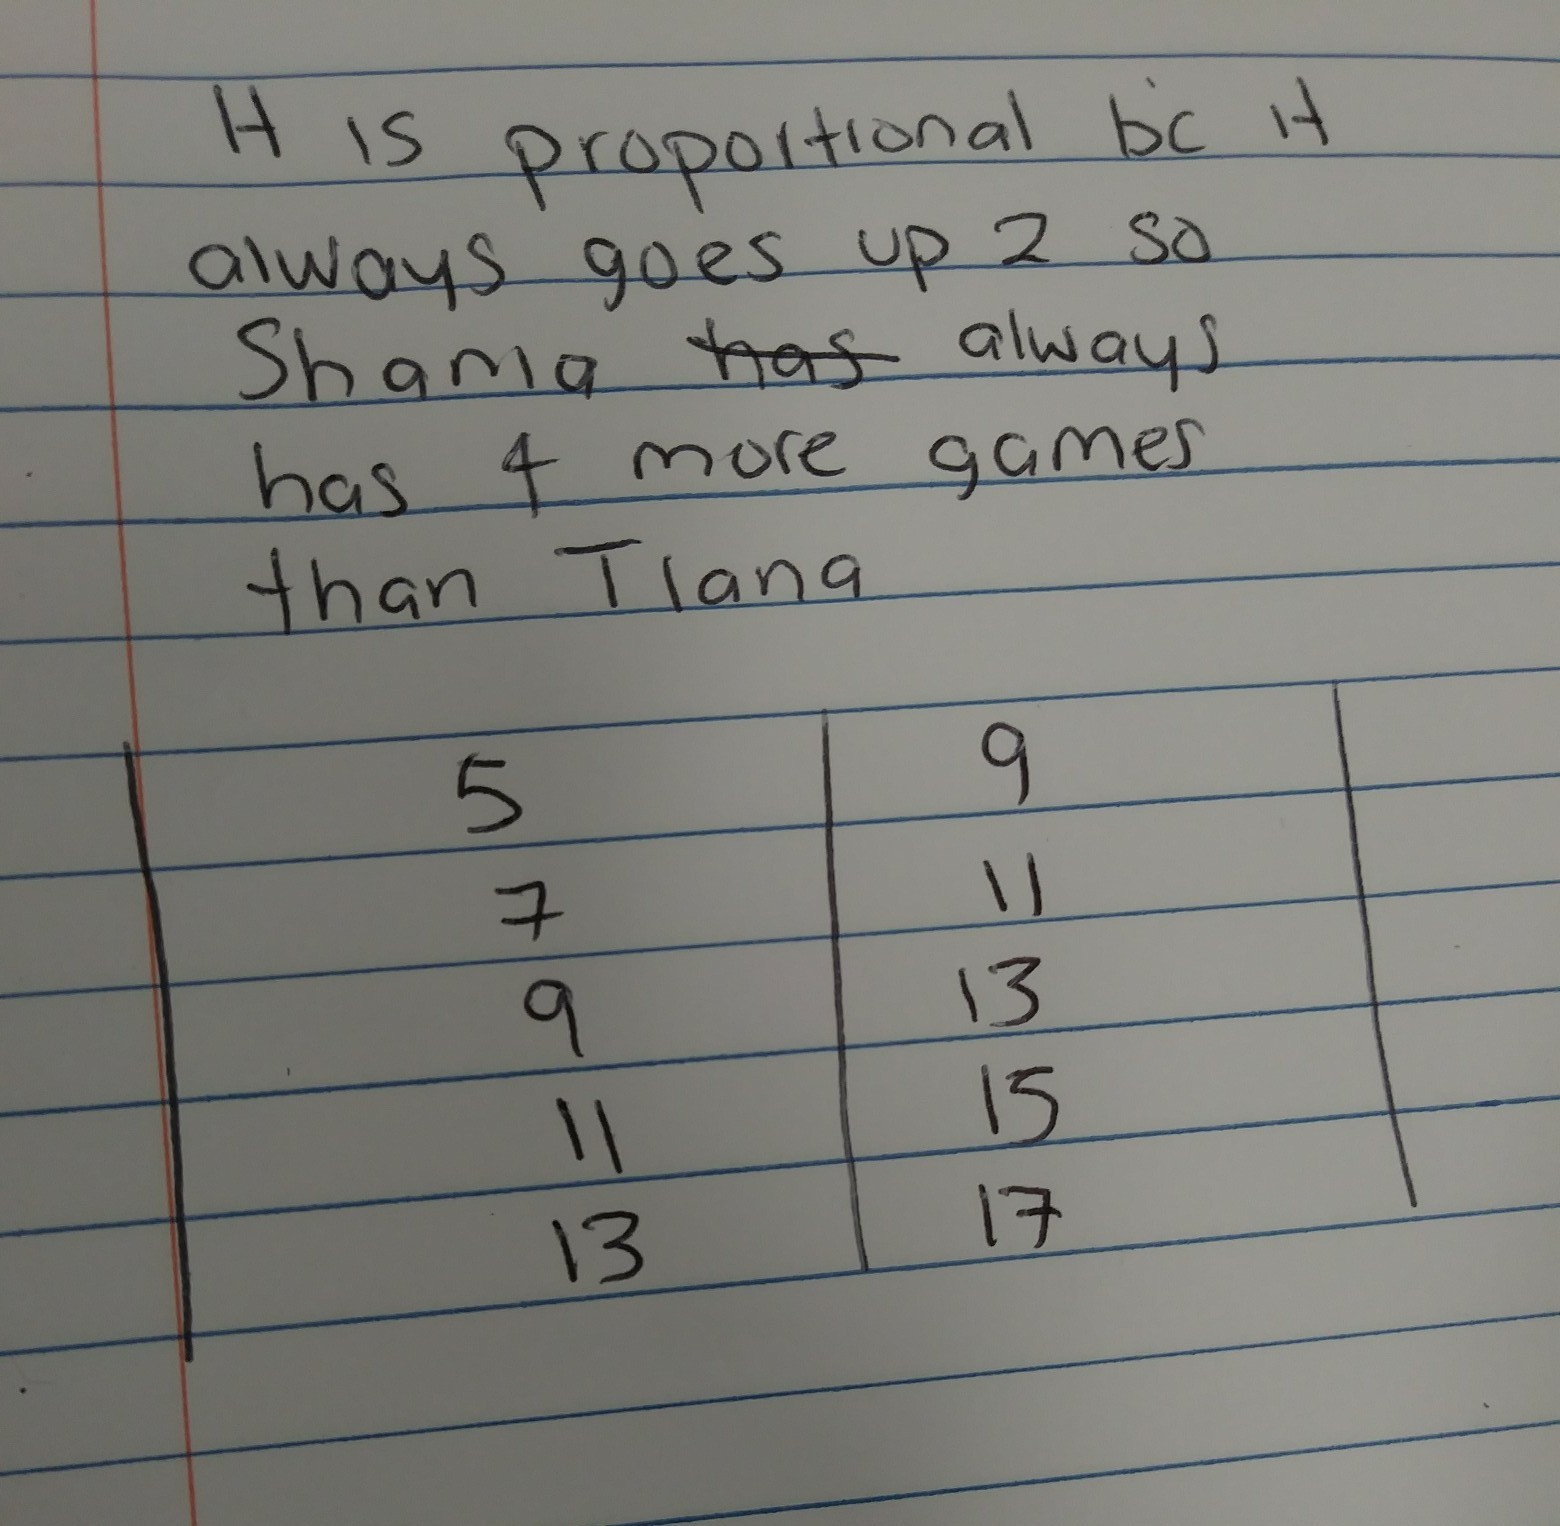 It is proportional bc it
always goes up 2 so
Shama has always
has 4 more games
than Tiana
5 9
7 11
9 13
11 15
13 17